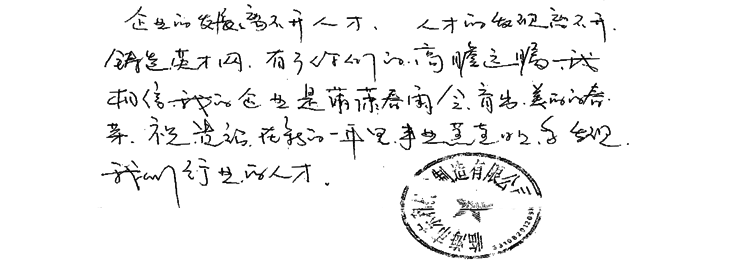 企业的发展离不开人才、人才的发现离不开
铸造英才网.有了你们的高瞻远瞩我
相信我的企业是蒲蒲春雨会育出美丽的春
菜.祝贵站在新的一年里事业蒸蒸日上多发现
我们行业的人才.
临海市 制造有限公司